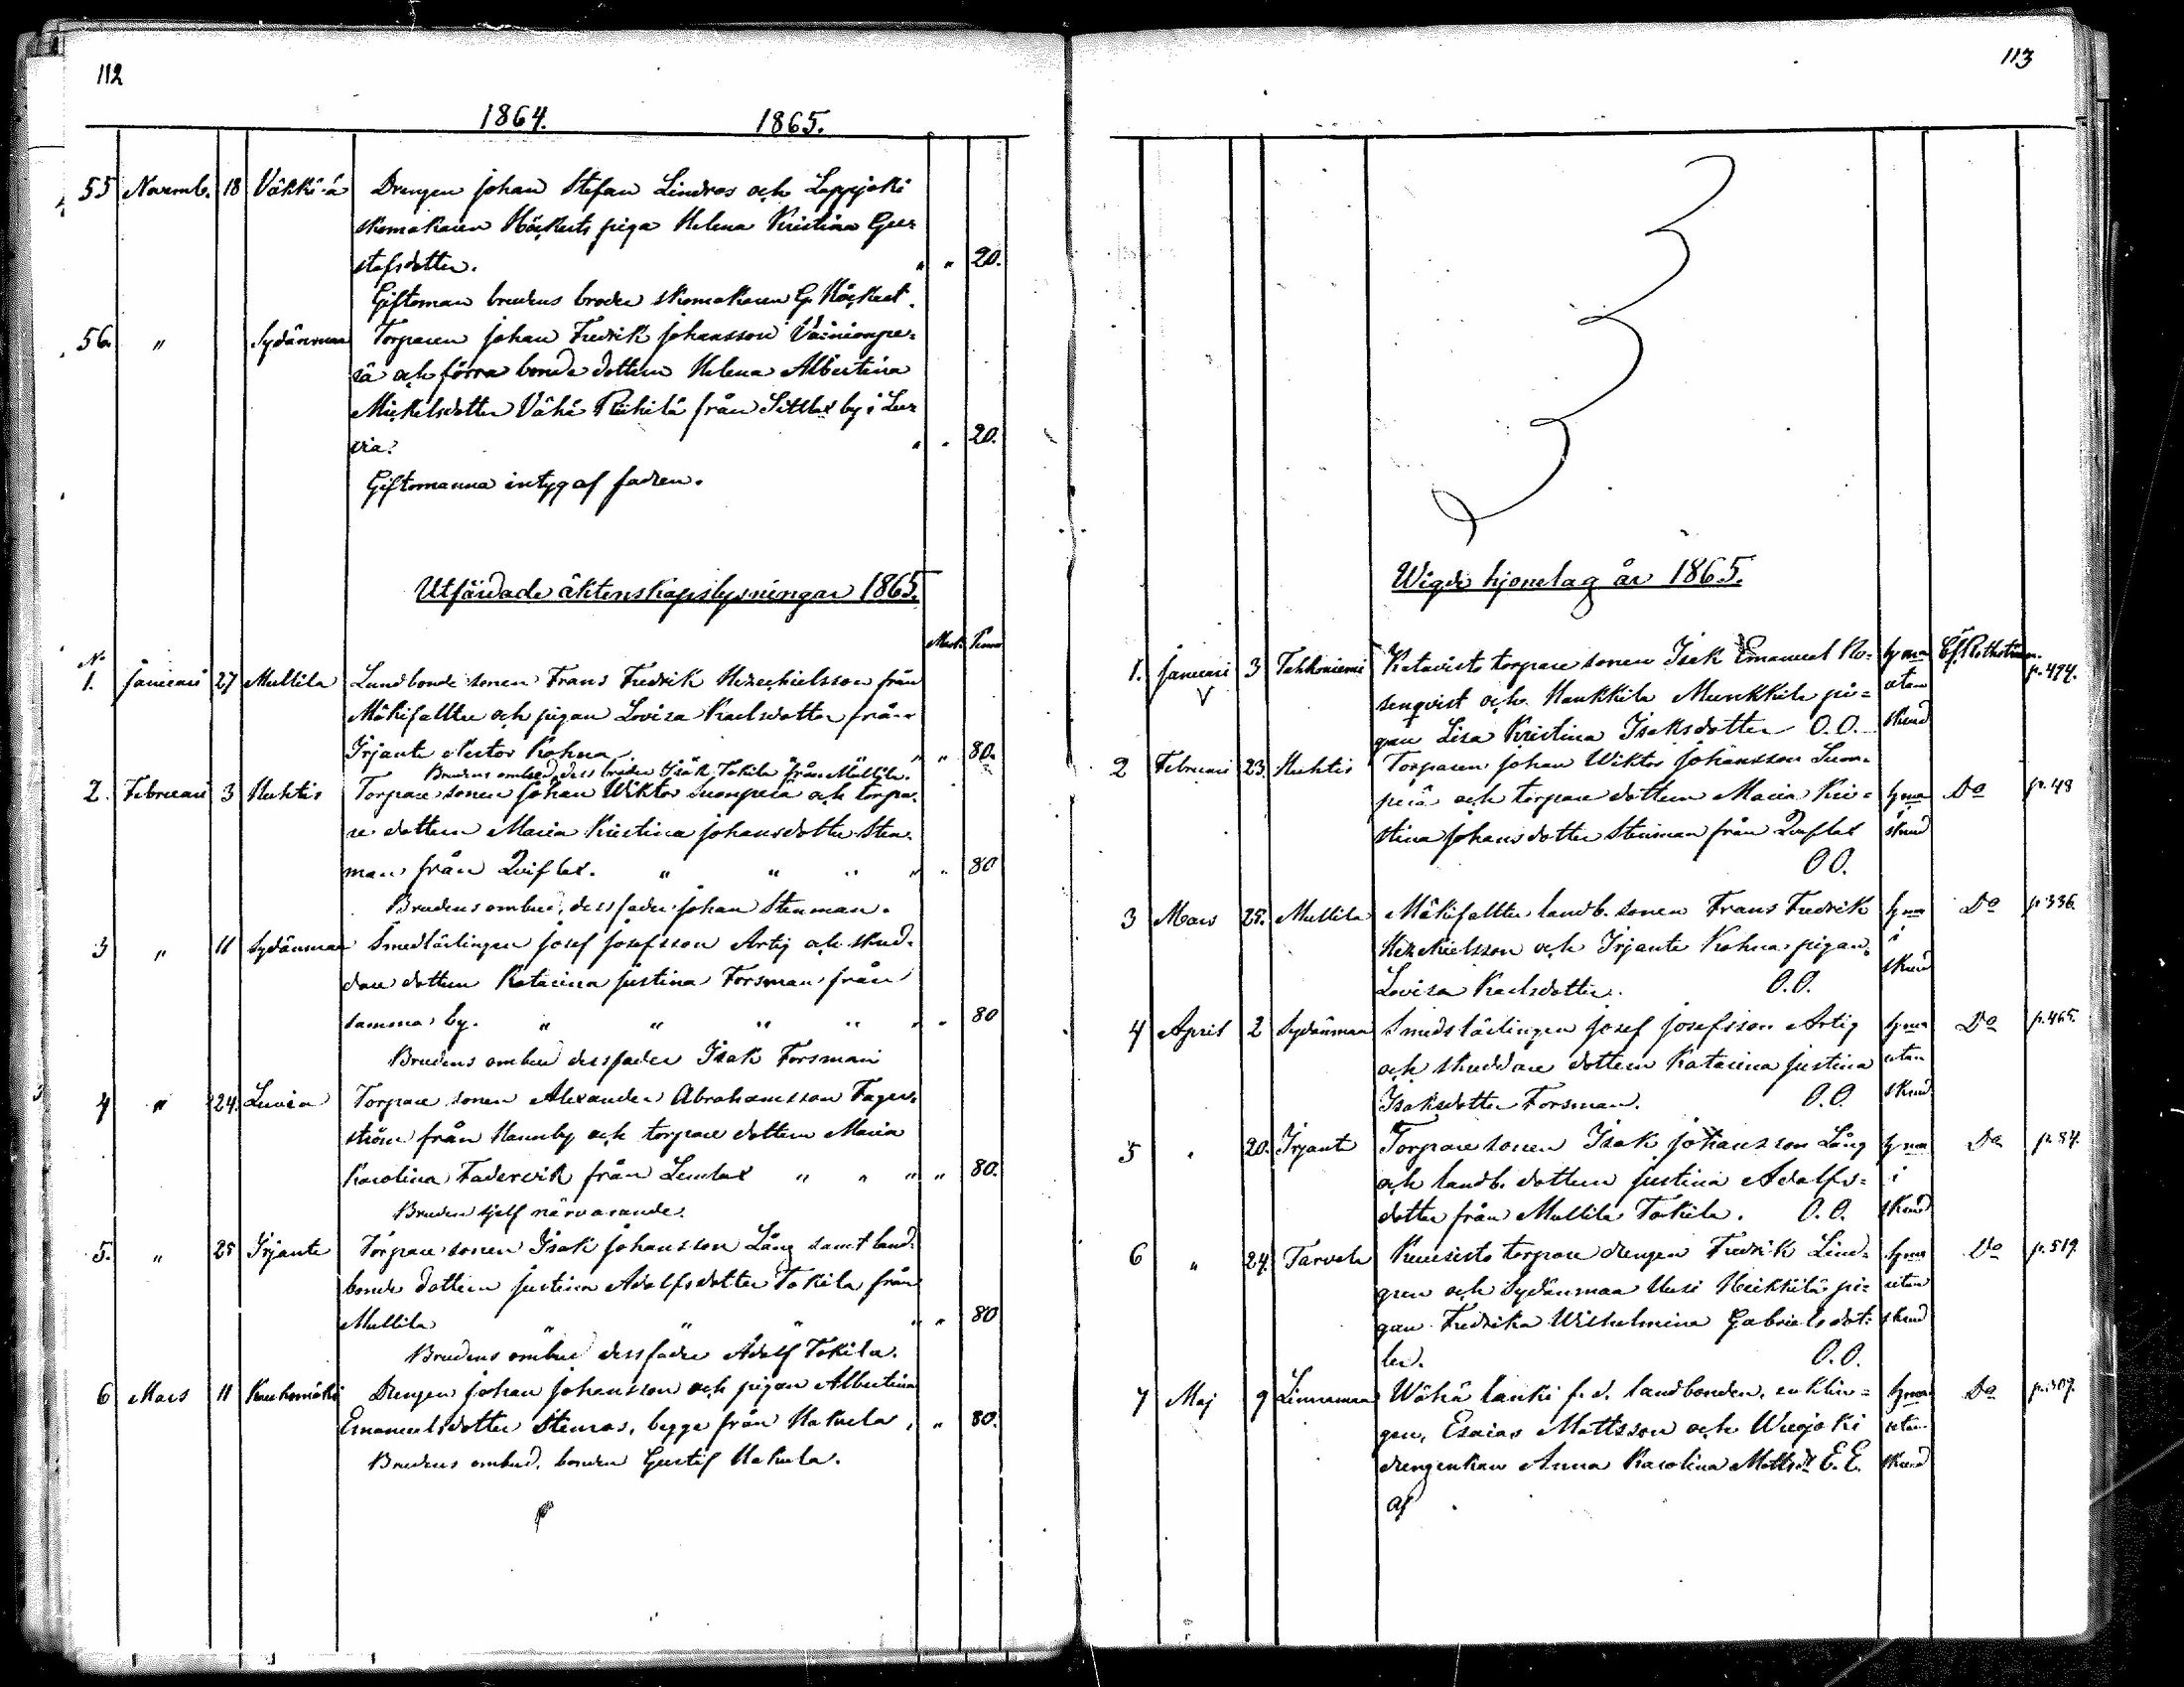 112
1864. 1865.
55 Novemb. 18 Vähki-å Drengen Johan Stefan Lindros och Lappjoki
skomakaren Höckerts piga Helena Kristina Gus-
tafsdotter. " " 20.
Giftoman brudens broder skomakaren G. Höckert.
56. " Sydänmaa Torparen Johan Fredrik Johansson Vainionpe-
rä och förra bonde dottern Helena Albertina
Mickelsdotter Vähä Riihilä från by i Lu-
via. " " 20.
Giftomanna intyg af fadren.
Utfärdade äktenskapslysningar 1865.
No Mark. Penni
1. Januari 27 Mullila Landbonde sonen Frans Fredrik Hezechielsson från
Mäkifalltu och pigan Lovisa Karlsdotter från
Irjante Nestor Kohna " " 80.
Brudens ombud dess broder Isak Takila från Mullila.
2. Februari 3 Huhtis Torpare sonen Johan Wiktor Suonperä och torpa-
re dottern Maria Kristina Johansdotter Sten-
man från Qviflax. " " " " " 80
Brudens ombud, dess fader Johan Stenman.
3 " 11 Sydänmaa Smedlärlingen Josef Josefsson Artig och skred-
dare dottern Katarina Justina Forsman från
samma by. " " " " " " 80
Brudens ombud dess fader Isak Forsman
4 " 24. Luvia Torpare sonen Alexander Abrahamsson Fager-
ström från Hannby och torpare dottern Maria
Karolina Federvik från Lemlax " " " " 80.
Bruden sjelf närvarande.
5. " 25 Irjante Torpare sonen Isak Johansson Lång samt land-
bonde dottern Justina Adolfsdotter Takila från
Mullila " " " " " 80
Brudens ombud dess fader Adolf Takila.
6 Mars 11 Kaukomäki Drengen Johan Johansson och pigan Albertina
Emanuelsdotter Stenros, begge från Hakuela, " 80.
Brudens ombud, bonden Gustif Hakuela.
113
Wigde hjonelag år 1865.
1. Januari 3 Tahkoniemi Katavisto torpare sonen Isak Emanuel Ro-
senqvist och Haukkila Munkkila pi-
gan Lisa Kristina Isaksdotter O.O. utan skrud p. 494.
V
2 Februari 23. Huhtis Torparen Johan Wiktor Johansson Suon-
perä och torpare dottern Maria Kri- Do p. 48
stina Johansdotter Stenman från Qviflax skrud
O O.
3 Mars 25. Mullila Mäkifalltu landb. sonen Frans Fredrik Do p. 336.
Hezekielsson och Irjante Kohna pigan i
Lovisa Karlsdotter. O.O. skrud
4 April 2 Sydänmaa Smedslärlingen Josef Josefsson Artig Do p. 465.
och skreddare dottern Katarina Justina utan
Isaksdotter Forsman. O.O. skrud
5 " 20. Irjante Torpare sonen Isak Johansson Lång Do p. 84.
och landb. dottern Justina Adolfs- i
dotter från Mullila Takila. O.O. skrud
6 " 24. Tarvola Kuusisto torpare drengen Fredrik Lind- Do p. 519.
gren och Sydänmaa Uusi Heikkilä pi- utan
gan Fredrika Wilhelmina Gabrielsdot- skrud
ter. O.O.
7 Maj 9 Linnamaa Wähä lanki f. d. landbonden, enklin- Do p. 309.
gen, Esaias Mattsson och Wuojoki utan
drengenkan Anna Karolina Mattsdr E.E. skrud
af